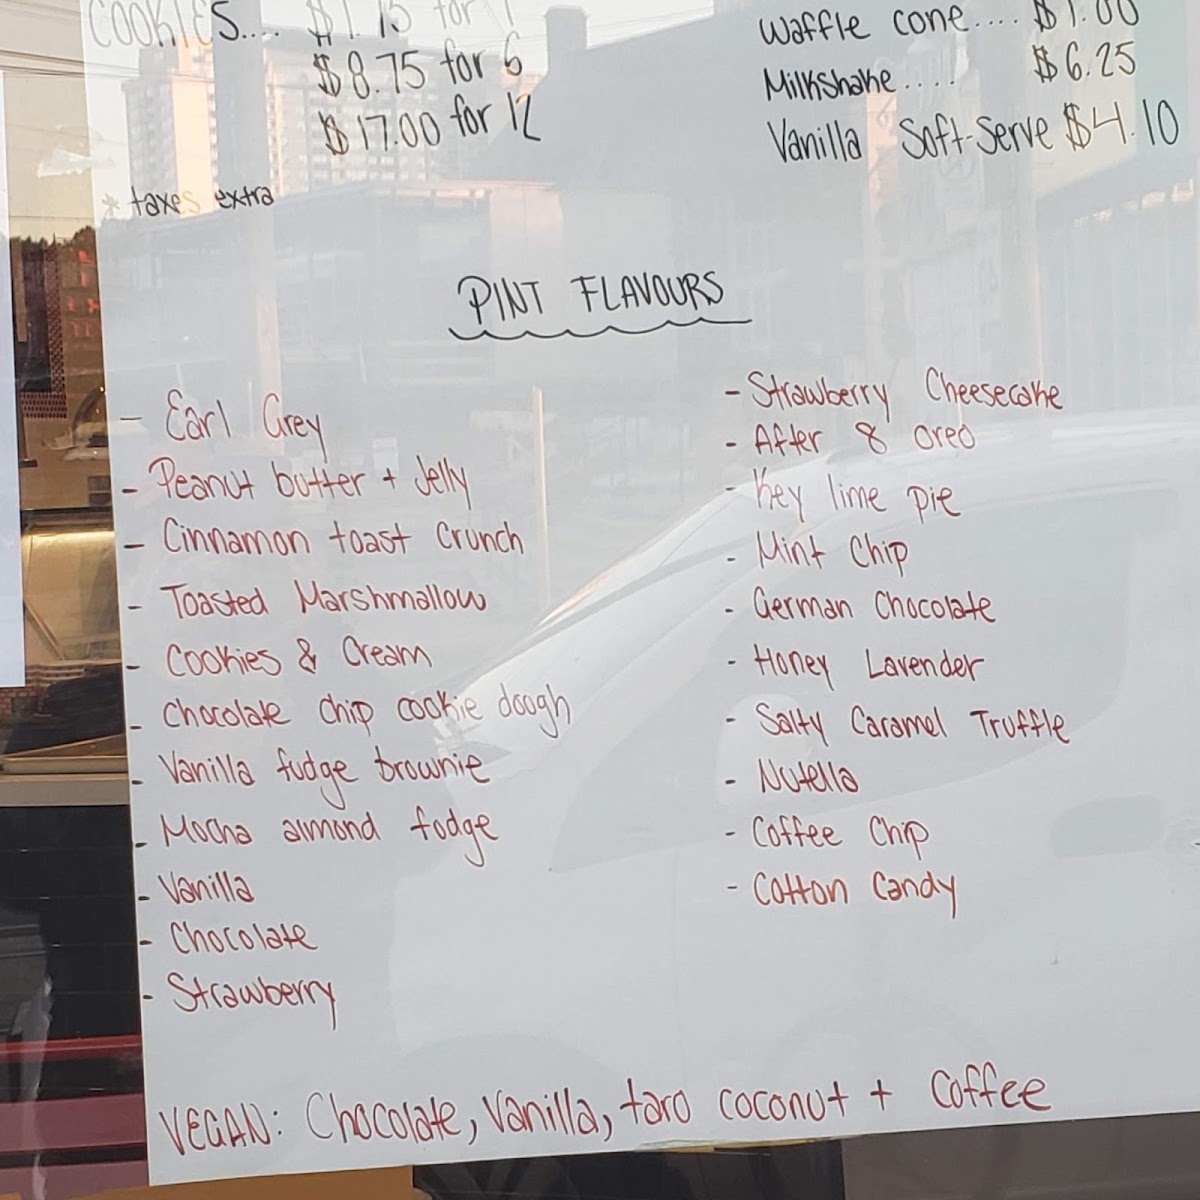 COOKIES.... $1.75 for 1
$8.75 for 6
$17.00 for 12
* taxes extra
Waffle cone.... $1.00
Milkshake.... $6.25
Vanilla Soft-Serve $4.10
PINT FLAVOURS
- Earl Grey
- Peanut butter + Jelly
- Cinnamon toast Crunch
- Toasted Marshmallow
- Cookies & Cream
- Chocolate chip cookie dough
- Vanilla fudge brownie
- Mocha almond fudge
- Vanilla
- Chocolate
- Strawberry
- Strawberry Cheesecake
- After 8 Oreo
- Key lime pie
- Mint Chip
- German Chocolate
- Honey Lavender
- Salty Caramel Truffle
- Nutella
- Coffee Chip
- Cotton Candy
VEGAN: Chocolate, Vanilla, taro coconut + Coffee